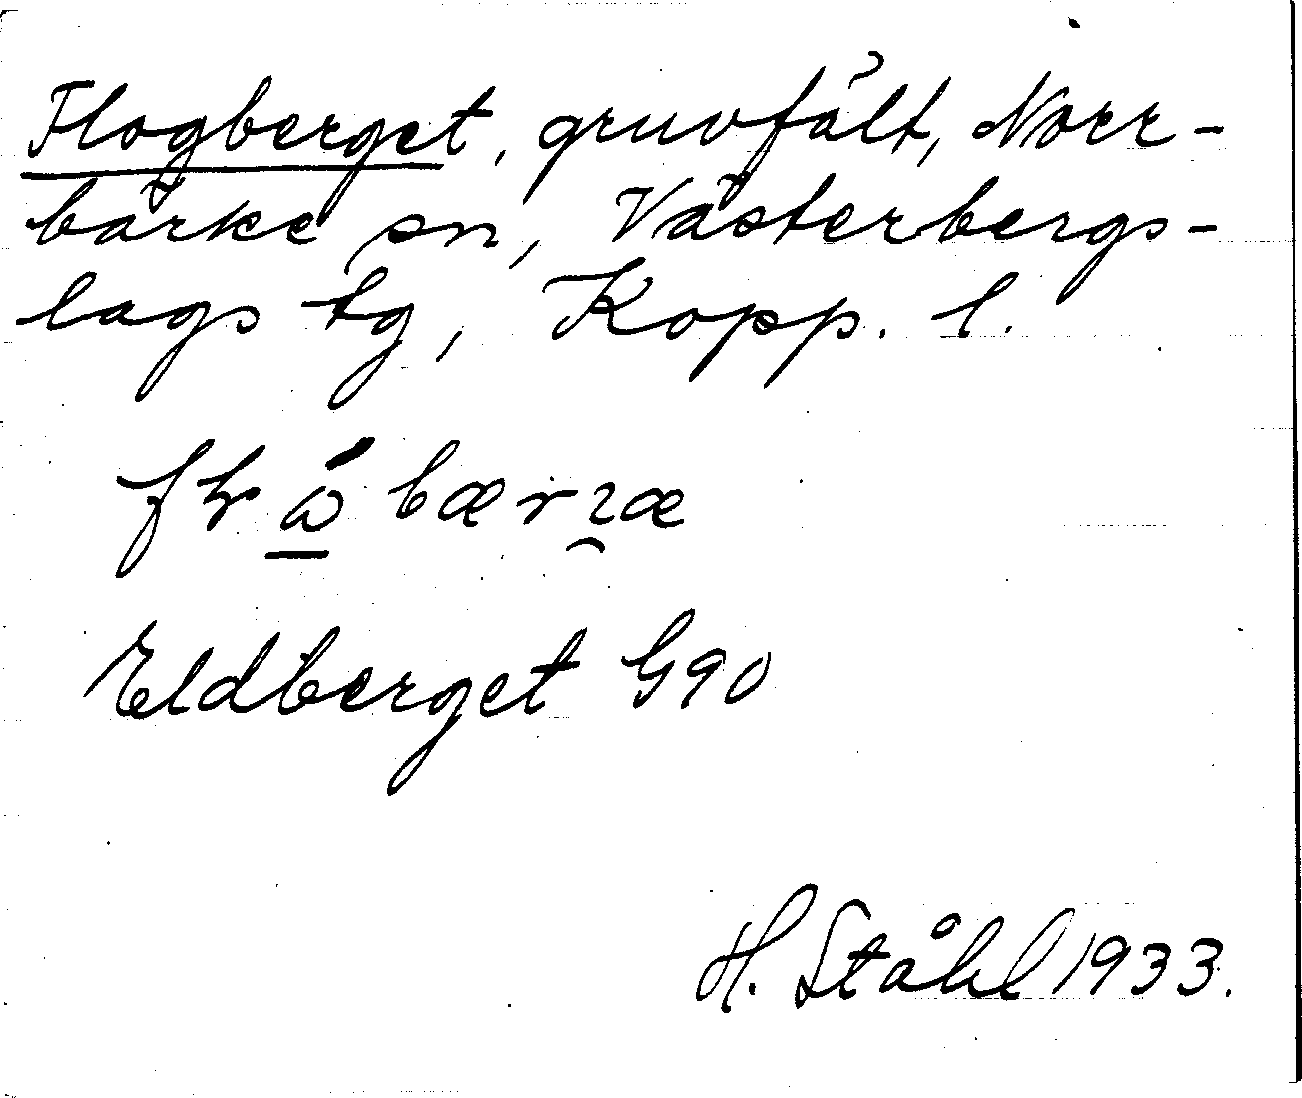 Flogberget, gruvfält, Norr-
bärke sn, Västerbergs-
lags tg, Kopp. l.
Eldberget G90
H. Ståhl 1933.